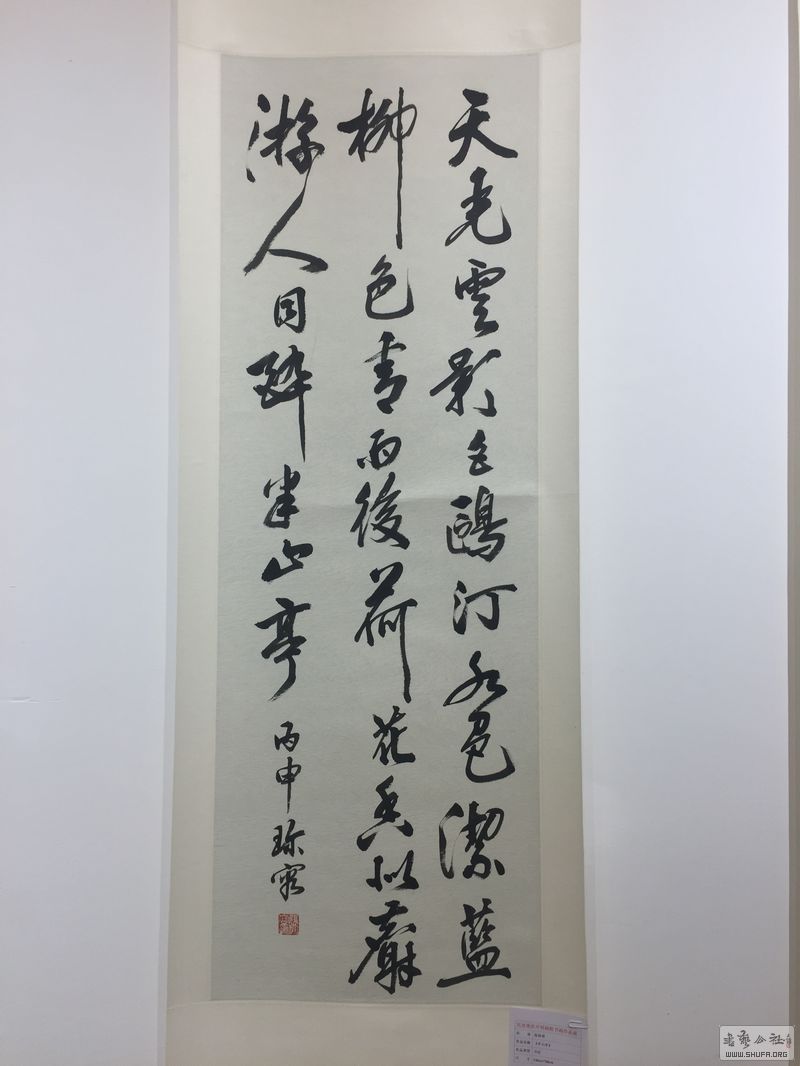 天光雲影白鷗汀水色潔藍
柳色青雨後荷花香似麝
游人醉半山亭
丙申
書法公社
WWW.SHUFA.ORG